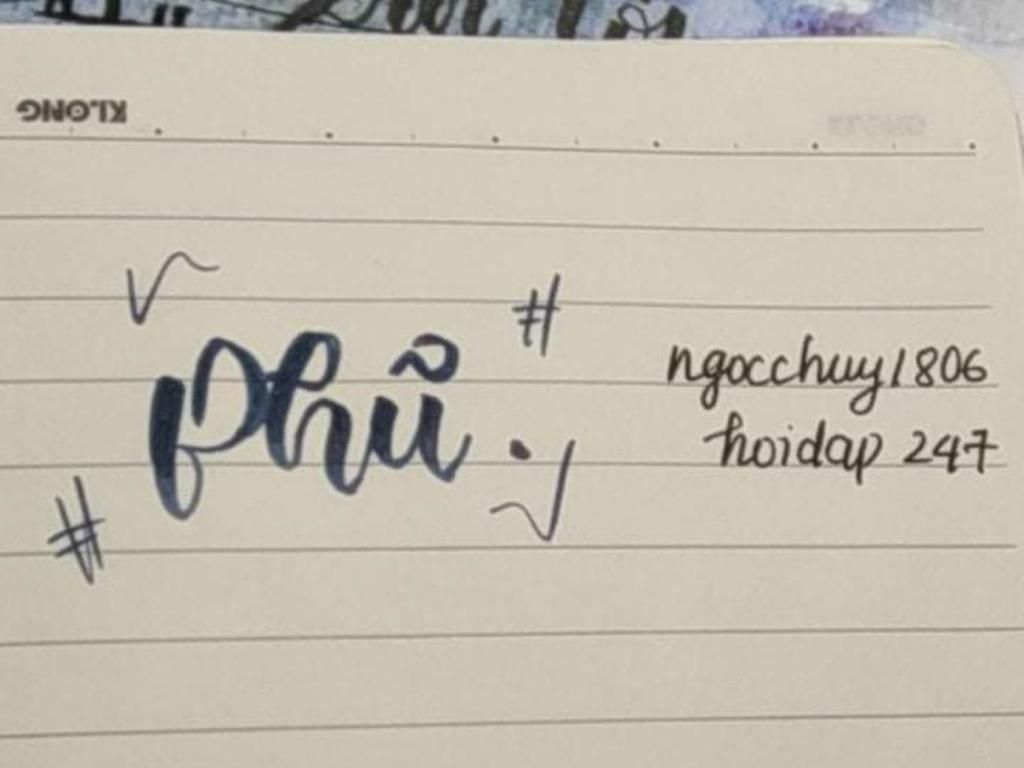 KLONG
Phũ.
ngocchuy1806
hoidap 247